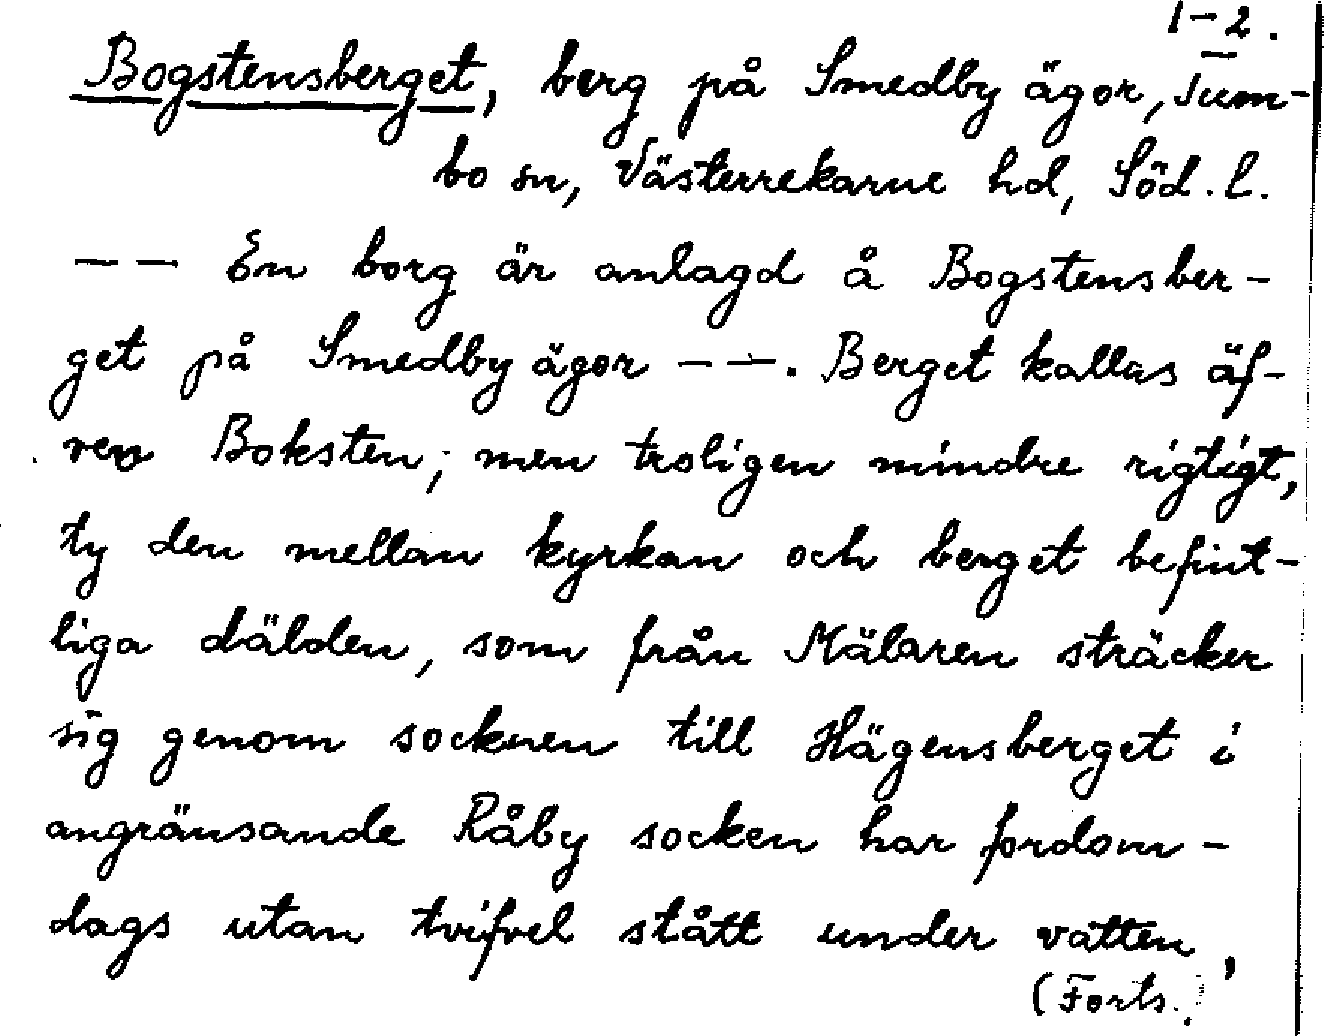 1-2.
Bogstensberget, berg på Smedby ägor, Tum-
bo sn, Västerrekarne hd, Söd. l.
— — En borg är anlagd å Bogstensber-
get på Smedby ägor — —. Berget kallas äf-
ven Boksten; men troligen mindre rigtigt,
ty den mellan kyrkan och berget befint-
liga dälden, som från Mälaren sträcker
sig genom socknen till Hägensberget i
angränsande Råby socken har fordom-
dags utan tvifvel stått under vatten,
(Forts.)